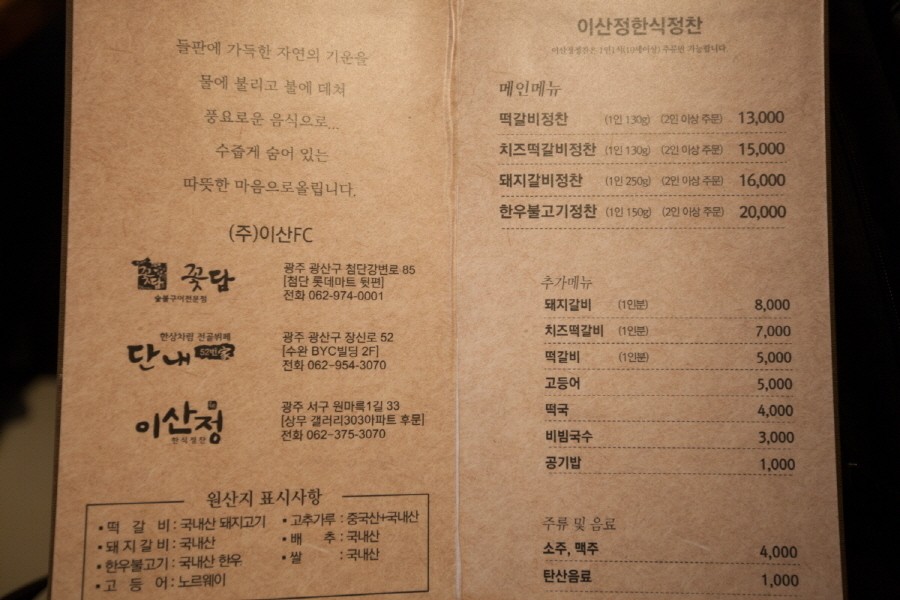 들판에 가득한 자연의 기운을
물에 불리고 불에 데쳐
풍요로운 음식으로...
수줍게 숨어 있는
따뜻한 마음으로올립니다.
(주)이산FC
꽃담
숯불구이전문점
광주 광산구 첨단강변로 85
[첨단 롯데마트 뒷편]
전화 062-974-0001
한상차림 전골뷔페
단내
광주 광산구 장신로 52
[수완 BYC빌딩 2F]
전화 062-954-3070
이산정
한식정찬
광주 서구 원마륵1길 33
[상무 갤러리303아파트 후문]
전화 062-375-3070
원산지 표시사항
• 떡 갈 비 : 국내산 돼지고기
• 돼지갈비 : 국내산
• 한우불고기 : 국내산 한우
• 고 등 어 : 노르웨이
• 고추가루 : 중국산+국내산
• 배 추 : 국내산
• 쌀 : 국내산
이산정한식정찬
메인메뉴
떡갈비정찬 (1인 130g) (2인 이상 주문) 13,000
치즈떡갈비정찬 (1인 130g) (2인 이상 주문) 15,000
돼지갈비정찬 (1인 250g) (2인 이상 주문) 16,000
한우불고기정찬 (1인 150g) (2인 이상 주문) 20,000
추가메뉴
돼지갈비 (1인분) 8,000
치즈떡갈비 (1인분) 7,000
떡갈비 (1인분) 5,000
고등어 5,000
떡국 4,000
비빔국수 3,000
공기밥 1,000
주류 및 음료
소주, 맥주 4,000
탄산음료 1,000